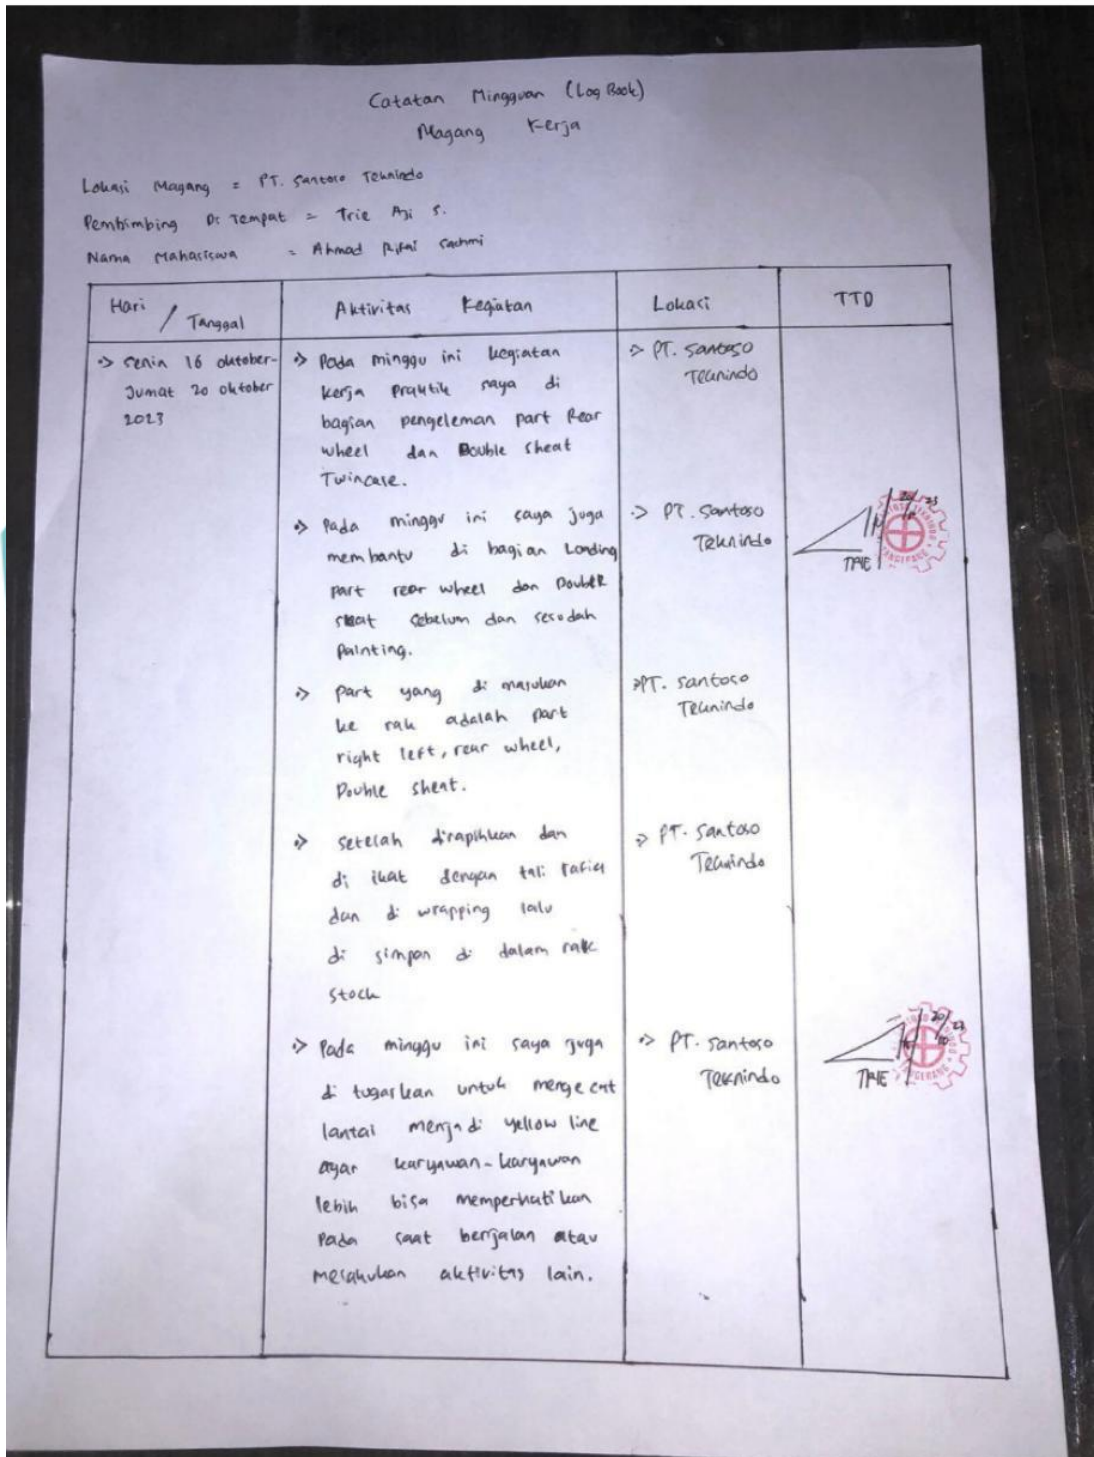 Catatan Mingguan (Log Book)
Magang Kerja
Lokasi Magang = PT. Santoso Teknindo
Pembimbing Di Tempat = Trie Aji S.
Nama Mahasiswa = Ahmad Rifai Sachmi
Hari / Tanggal
Aktivitas Kegiatan
Lokasi
TTD
-> Senin 16 oktober-
Jumat 20 oktober
2023
-> Pada minggu ini kegiatan
kerja praktik saya di
bagian pengeleman part Rear
wheel dan Double sheat
Twincase.
-> PT. Santoso
Teknindo
-> Pada minggu ini saya juga
membantu di bagian Loading
part rear wheel dan Double
sheat sebelum dan sesudah
Painting.
-> PT. Santoso
Teknindo
TRIE
-> Part yang di masukan
ke rak adalah part
right left, rear wheel,
Double sheat.
-> PT. Santoso
Teknindo
-> setelah dirapihkan dan
di ikat dengan tali rafia
dan di wrapping lalu
di simpan di dalam rak
stock
-> PT. Santoso
Teknindo
-> Pada minggu ini saya juga
di tugaskan untuk mengecat
lantai menjadi yellow line
agar karyawan-karyawan
lebih bisa memperhatikan
pada saat berjalan atau
melakukan aktivitas lain.
-> PT. Santoso
Teknindo
TRIE